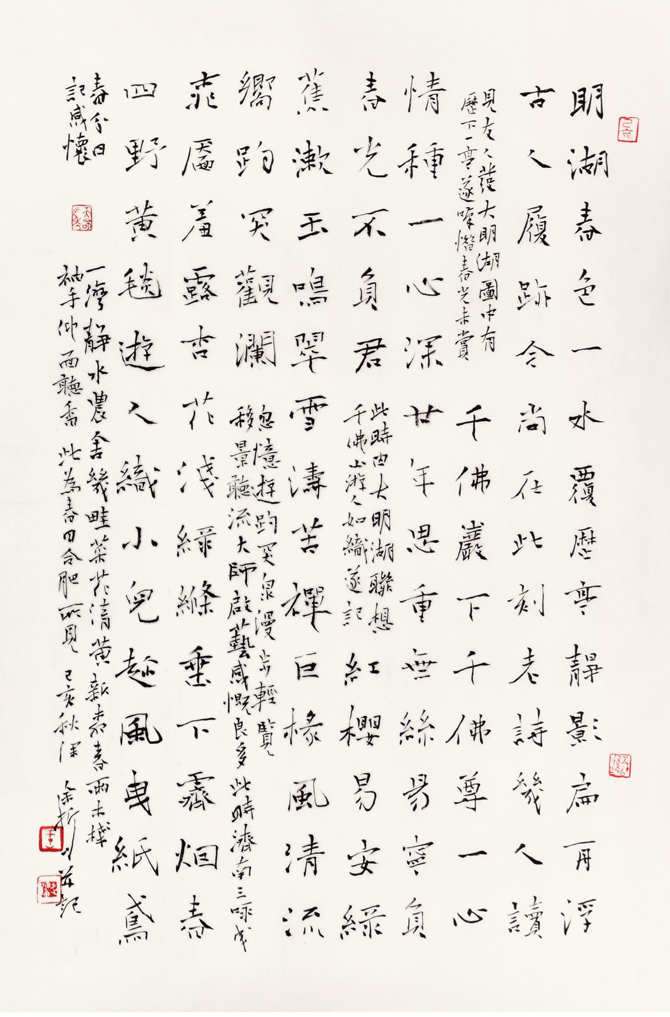 明湖春色一水覆歷亭靜影扁舟浮
古人履跡今尚在此刻老詩幾人讀
見友人發大明湖圖中有
歷下一亭遂嘆惜春光未賞
千佛巖下千佛尊一心
情種一心深廿年思重無絲易寧負
春光不負君
此時由大明湖聯想
千佛山遊人如織遂記
紅櫻易安綠
蕉漱玉鳴翠雪濤苦禪巨椽風清流
嚮趵突觀瀾
忽憶遊趵突泉漫步輕覽
移景聽流大師啟藝感慨良多此時濟南三咏成
霏靨羞露杏花淺綠絛垂下霽烟春
四野黃毯遊人織小兒趁風曳紙鳶
春分日
記感懷
一灣靜水農舍幾畦菜花清黃新柔春雨木棧
袖手仰面聽香此為春日合肥所見己亥秋深並記